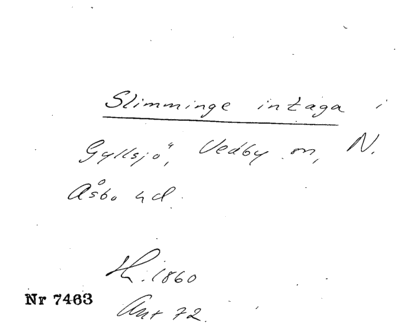 Slimminge intaga i
Gyllsjö, Vedby sn, N.
Åsbo hd.
H. 1860
Ant 72.
Nr 7463